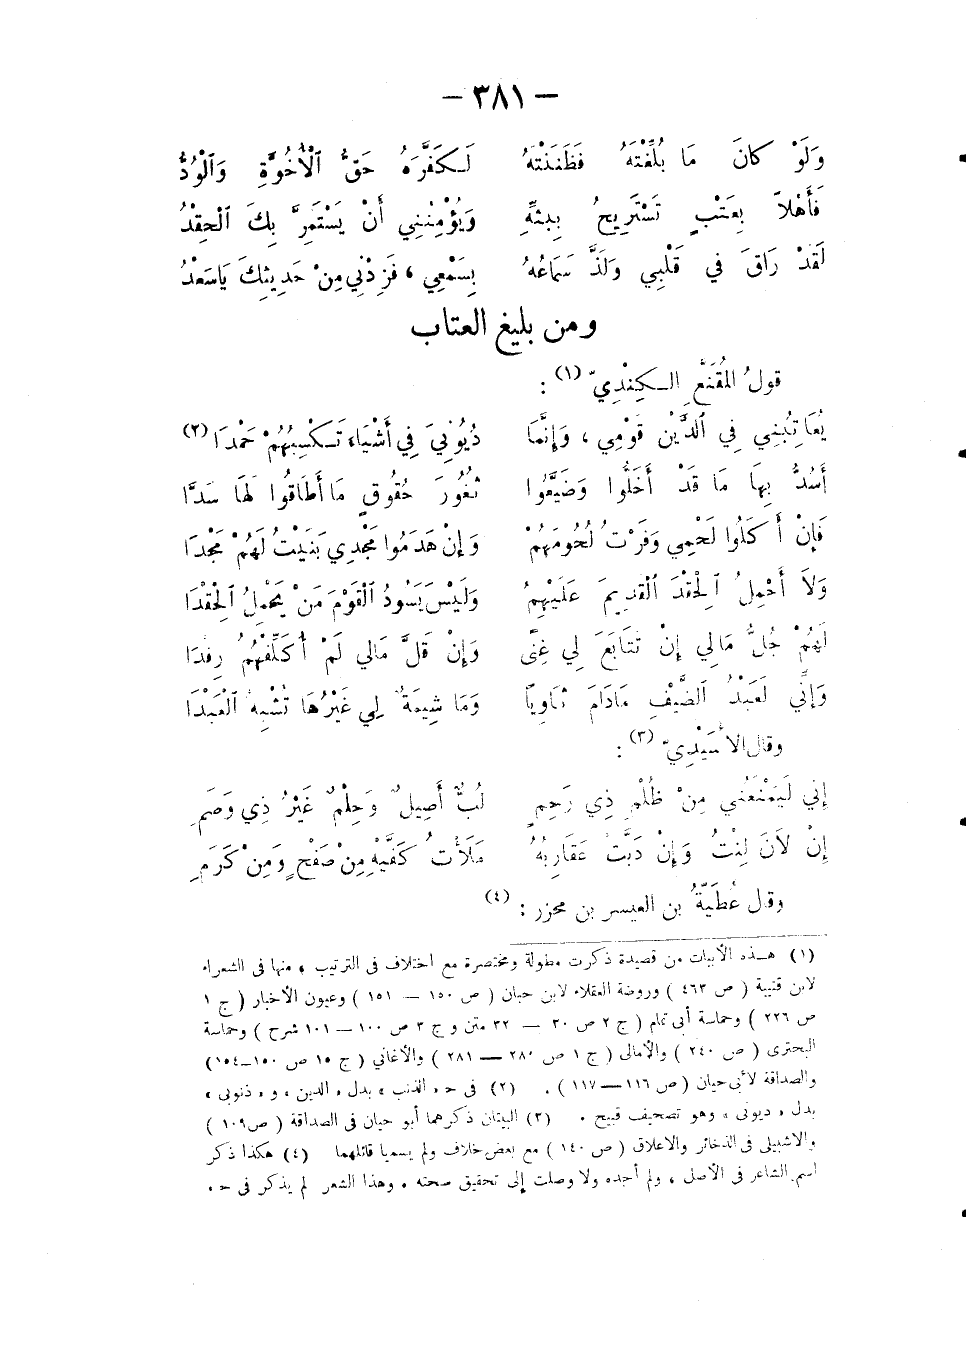 — ٣٨١ —
وَلَوْ كَانَ مَا بُلِّغْتَهُ فَظَنَنْتَهُ لَكَفَّرَهُ حَقُّ ٱلْأُخُوَّةِ وَٱلْوُدُّ
فَأَهْلاً بِعَتْبٍ تَسْتَرِيحُ بِبَثِّهِ وَيُؤْمِنُنِي أَنْ يَسْتَمِرَّ بِكَ ٱلْحِقْدُ
لَقَدْ رَاقَ فِي قَلْبِي وَلَذَّ سَمَاعُهُ بِسَمْعِي ، فَزِدْنِي مِنْ حَدِيثِكَ يَا سَعْدُ
ومن بليغ العتاب
قولُ المُقَنَّعِ الكِنْدِيّ (١) :
يُعَاتِبُنِي فِي ٱلدَّيْنِ قَوْمِي ، وَإِنَّمَا دُيُونِيَ فِي أَشْيَاءَ تَكْسِبُهُمْ حَمْدَا (٢)
أَسُدُّ بِهَا مَا قَدْ أَخَلُّوا وَضَيَّعُوا ثُغُورَ حُقُوقٍ مَا أَطَاقُوا لَهَا سَدَّا
فَإِنْ أَكَلُوا لَحْمِي وَفَرْتُ لُحُومَهُمْ وَإِنْ هَدَمُوا مَجْدِي بَنَيْتُ لَهُمْ مَجْدَا
وَلاَ أَحْمِلُ ٱلْحِقْدَ ٱلْقَدِيمَ عَلَيْهِمُ وَلَيْسَ يَسُودُ ٱلْقَوْمَ مَنْ يَحْمِلُ ٱلْحِقْدَا
لَهُمْ جُلُّ مَالِي إِنْ تَتَابَعَ لِي غِنًى وَإِنْ قَلَّ مَالِي لَمْ أُكَلِّفْهُمُ رِفْدَا
وَإِنِّي لَعَبْدُ ٱلضَّيْفِ مَادَامَ ثَاوِيًا وَمَا شِيمَةٌ لِي غَيْرُهَا تُشْبِهُ ٱلْعَبْدَا
وقال الأُسَيْدِيّ (٣) :
إِنِّي لَيَمْنَعُنِي مِنْ ظُلْمِ ذِي رَحِمٍ لُبٌّ أَصِيلٌ وَحِلْمٌ غَيْرُ ذِي وَصَمِ
إِنْ لاَنَ لِنْتُ وَإِنْ دَبَّتْ عَقَارِبُهُ مَلَأْتُ كَفَّيْهِ مِنْ صَفْحٍ وَمِنْ كَرَمِ
وقال عُطَيَّةُ بن العيسر بن محزر : (٤)
(١) هذه الأبيات من قصيدة ذكرت مطولة ومختصرة مع اختلاف فى الترتيب ، منها فى الشعراء
لابن قتيبة ( ص ٤٦٣ ) وروضة العقلاء لابن حبان ( ص ١٥٠ — ١٥١ ) وعيون الأخبار ( ج ١
ص ٢٢٦ ) وحماسة أبى تمام ( ج ٢ ص ٣٠ — ٣٢ متن و ج ٣ ص ١٠٠ — ١٠١ شرح ) وحماسة
البحترى ( ص ٢٤٠ ) والأمالى ( ج ١ ص ٢٨٠ — ٢٨١ ) والأغاني ( ج ١٥ ص ١٥٠—١٥٤)
والصداقة لأبى حيان ( ص ١١٦—١١٧ ) . (٢) فى ح « الذنب » بدل « الدين » و « ذنوبى »
بدل « ديونى » وهو تصحيف قبيح . (٣) البيتان ذكرهما أبو حيان فى الصداقة ( ص١٠٩ )
والاشبيلى فى الذخائر والاعلاق ( ص ١٤٠ ) مع بعض خلاف ولم يسميا قائلهما (٤) هكذا ذكر
اسم الشاعر فى الأصل ، ولم أجده ولا وصلت إلى تحقيق صحته . وهذا الشعر لم يذكر فى ح .